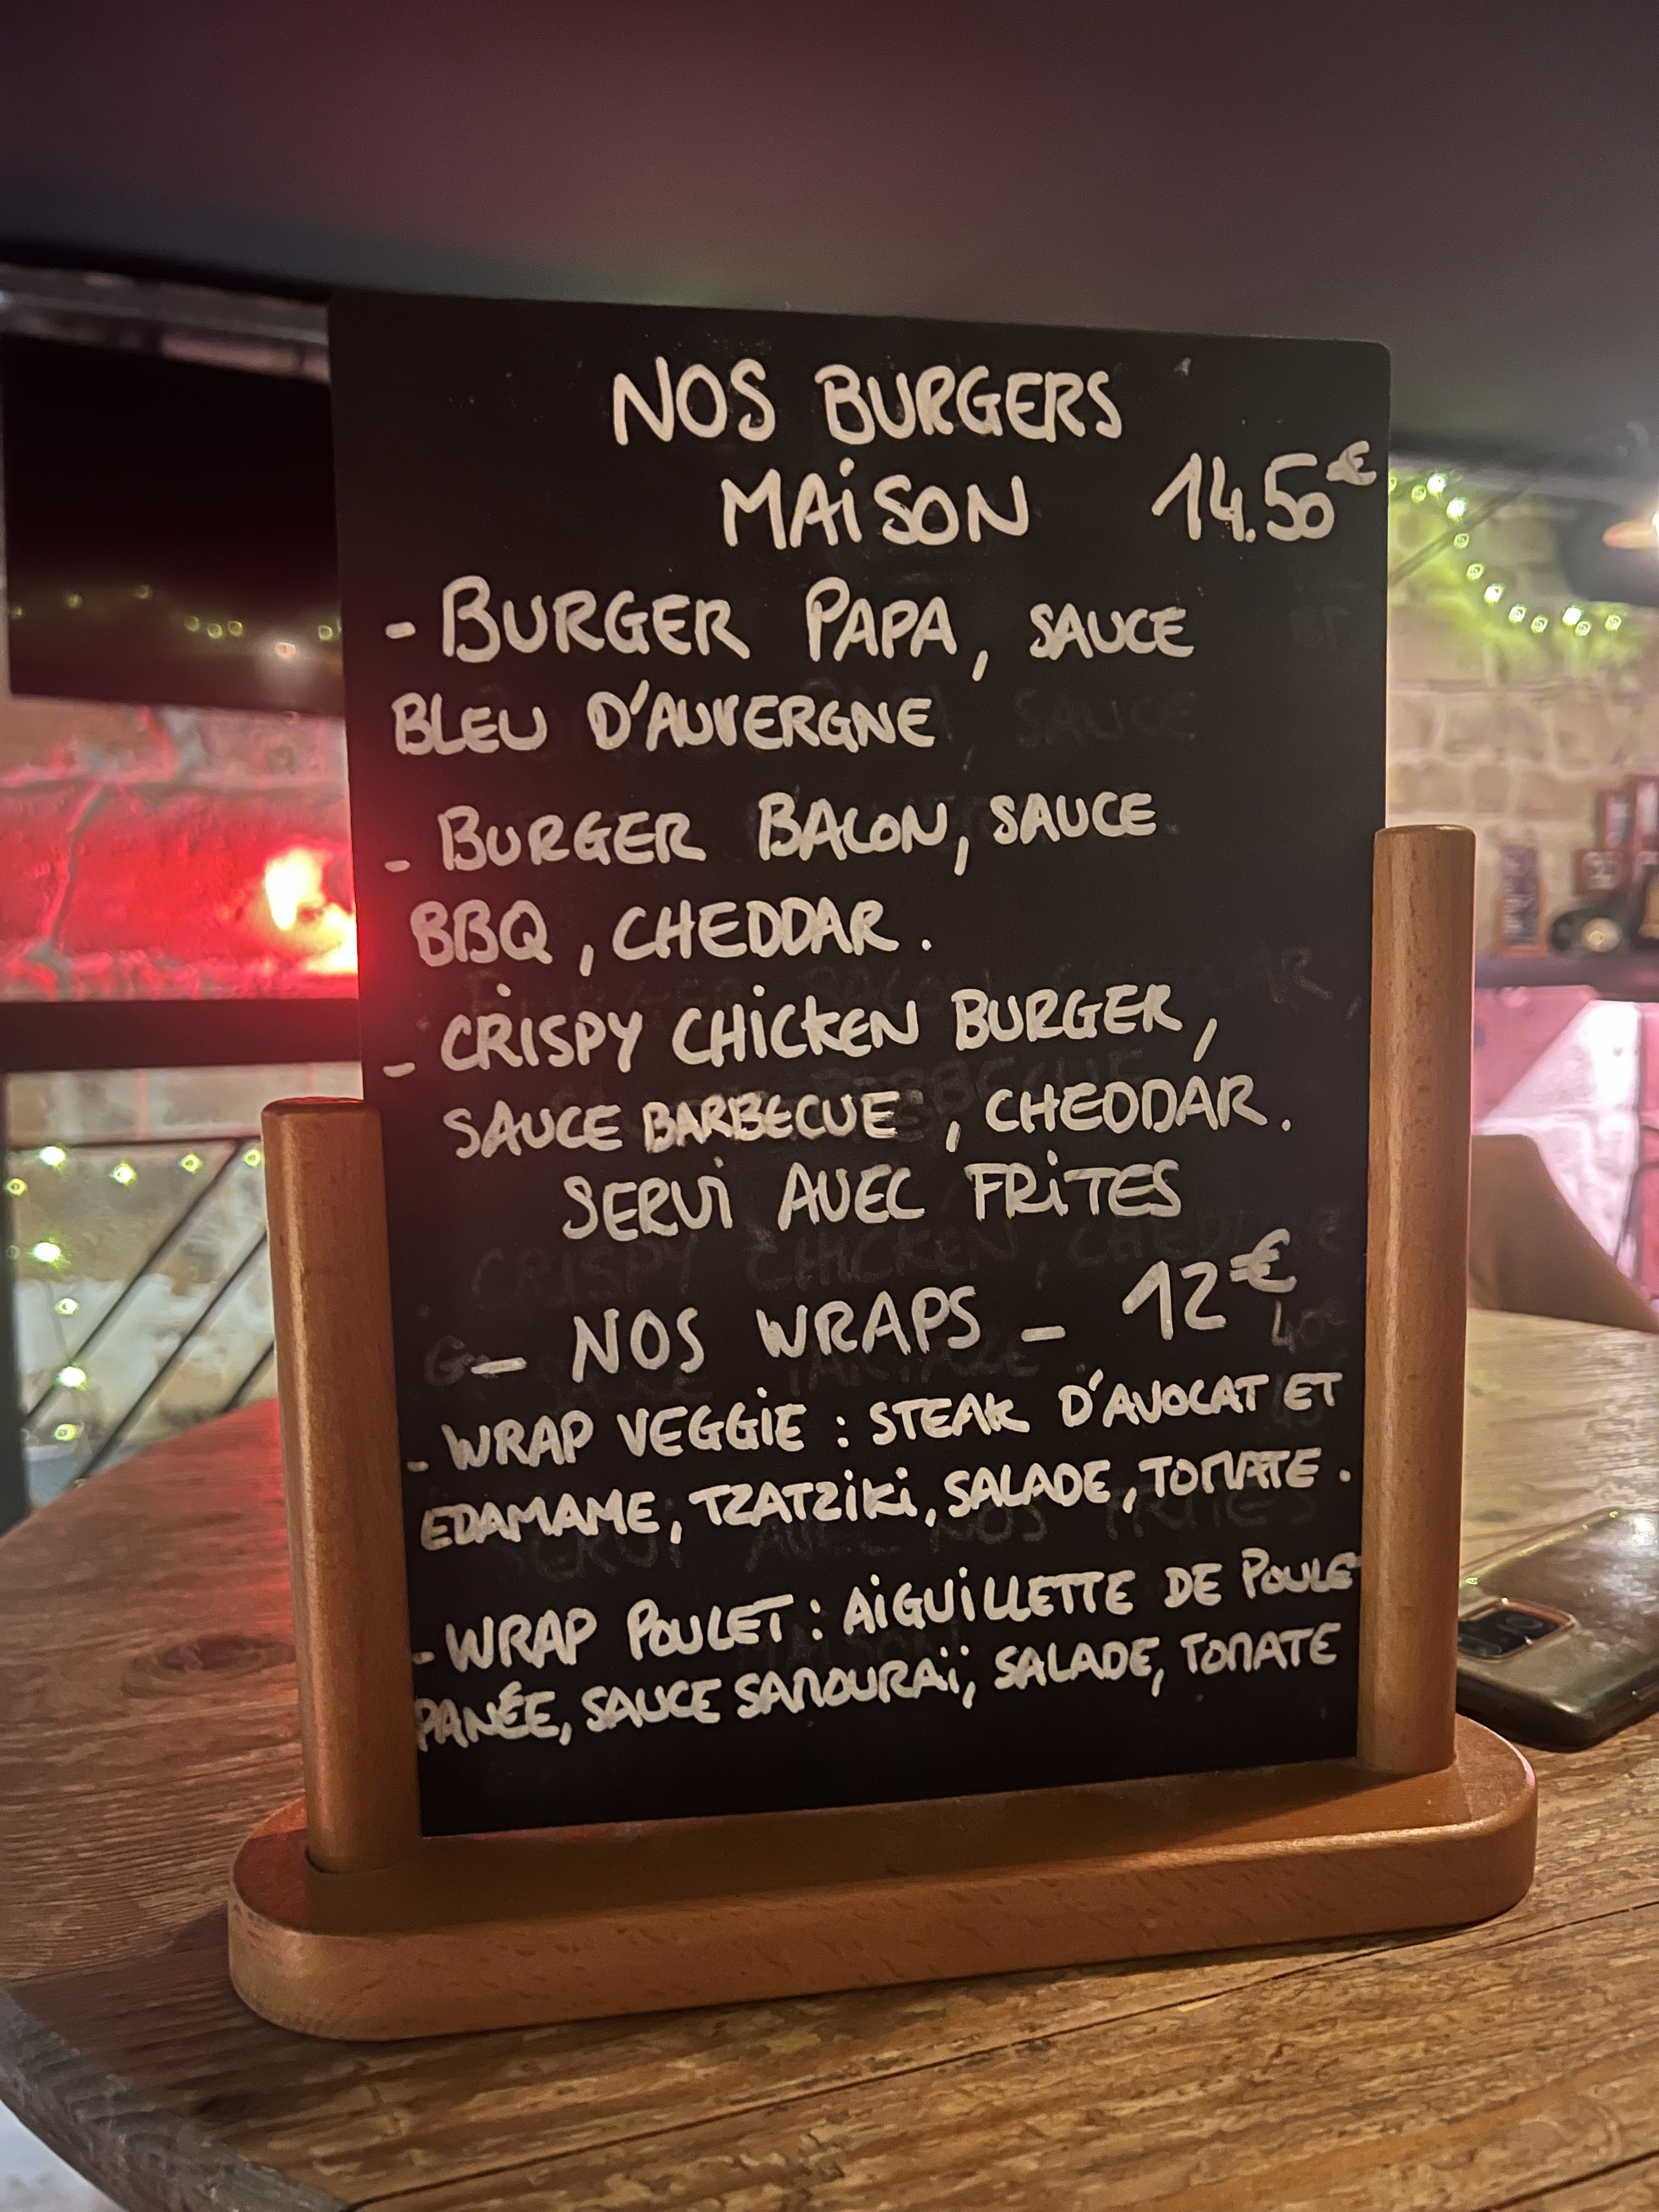 NOS BURGERS
MAiSON 14.50€
- BURGER PAPA, SAUCE
BLEU D'AUVERGNE
- BURGER BACON, SAUCE
BBQ, CHEDDAR.
- CRiSPY CHiCKEN BURGER,
SAUCE BARBECUE, CHEDDAR.
SERVi AVEC FRiTES
- NOS WRAPS - 12€
- WRAP VEGGiE : STEAK D'AVOCAT ET
EDAMAME, TZATZiKi, SALADE, TOMATE.
- WRAP POULET : AiGUiLLETTE DE POULET
PANÉE, SAUCE SAMOURAÏ, SALADE, TOMATE